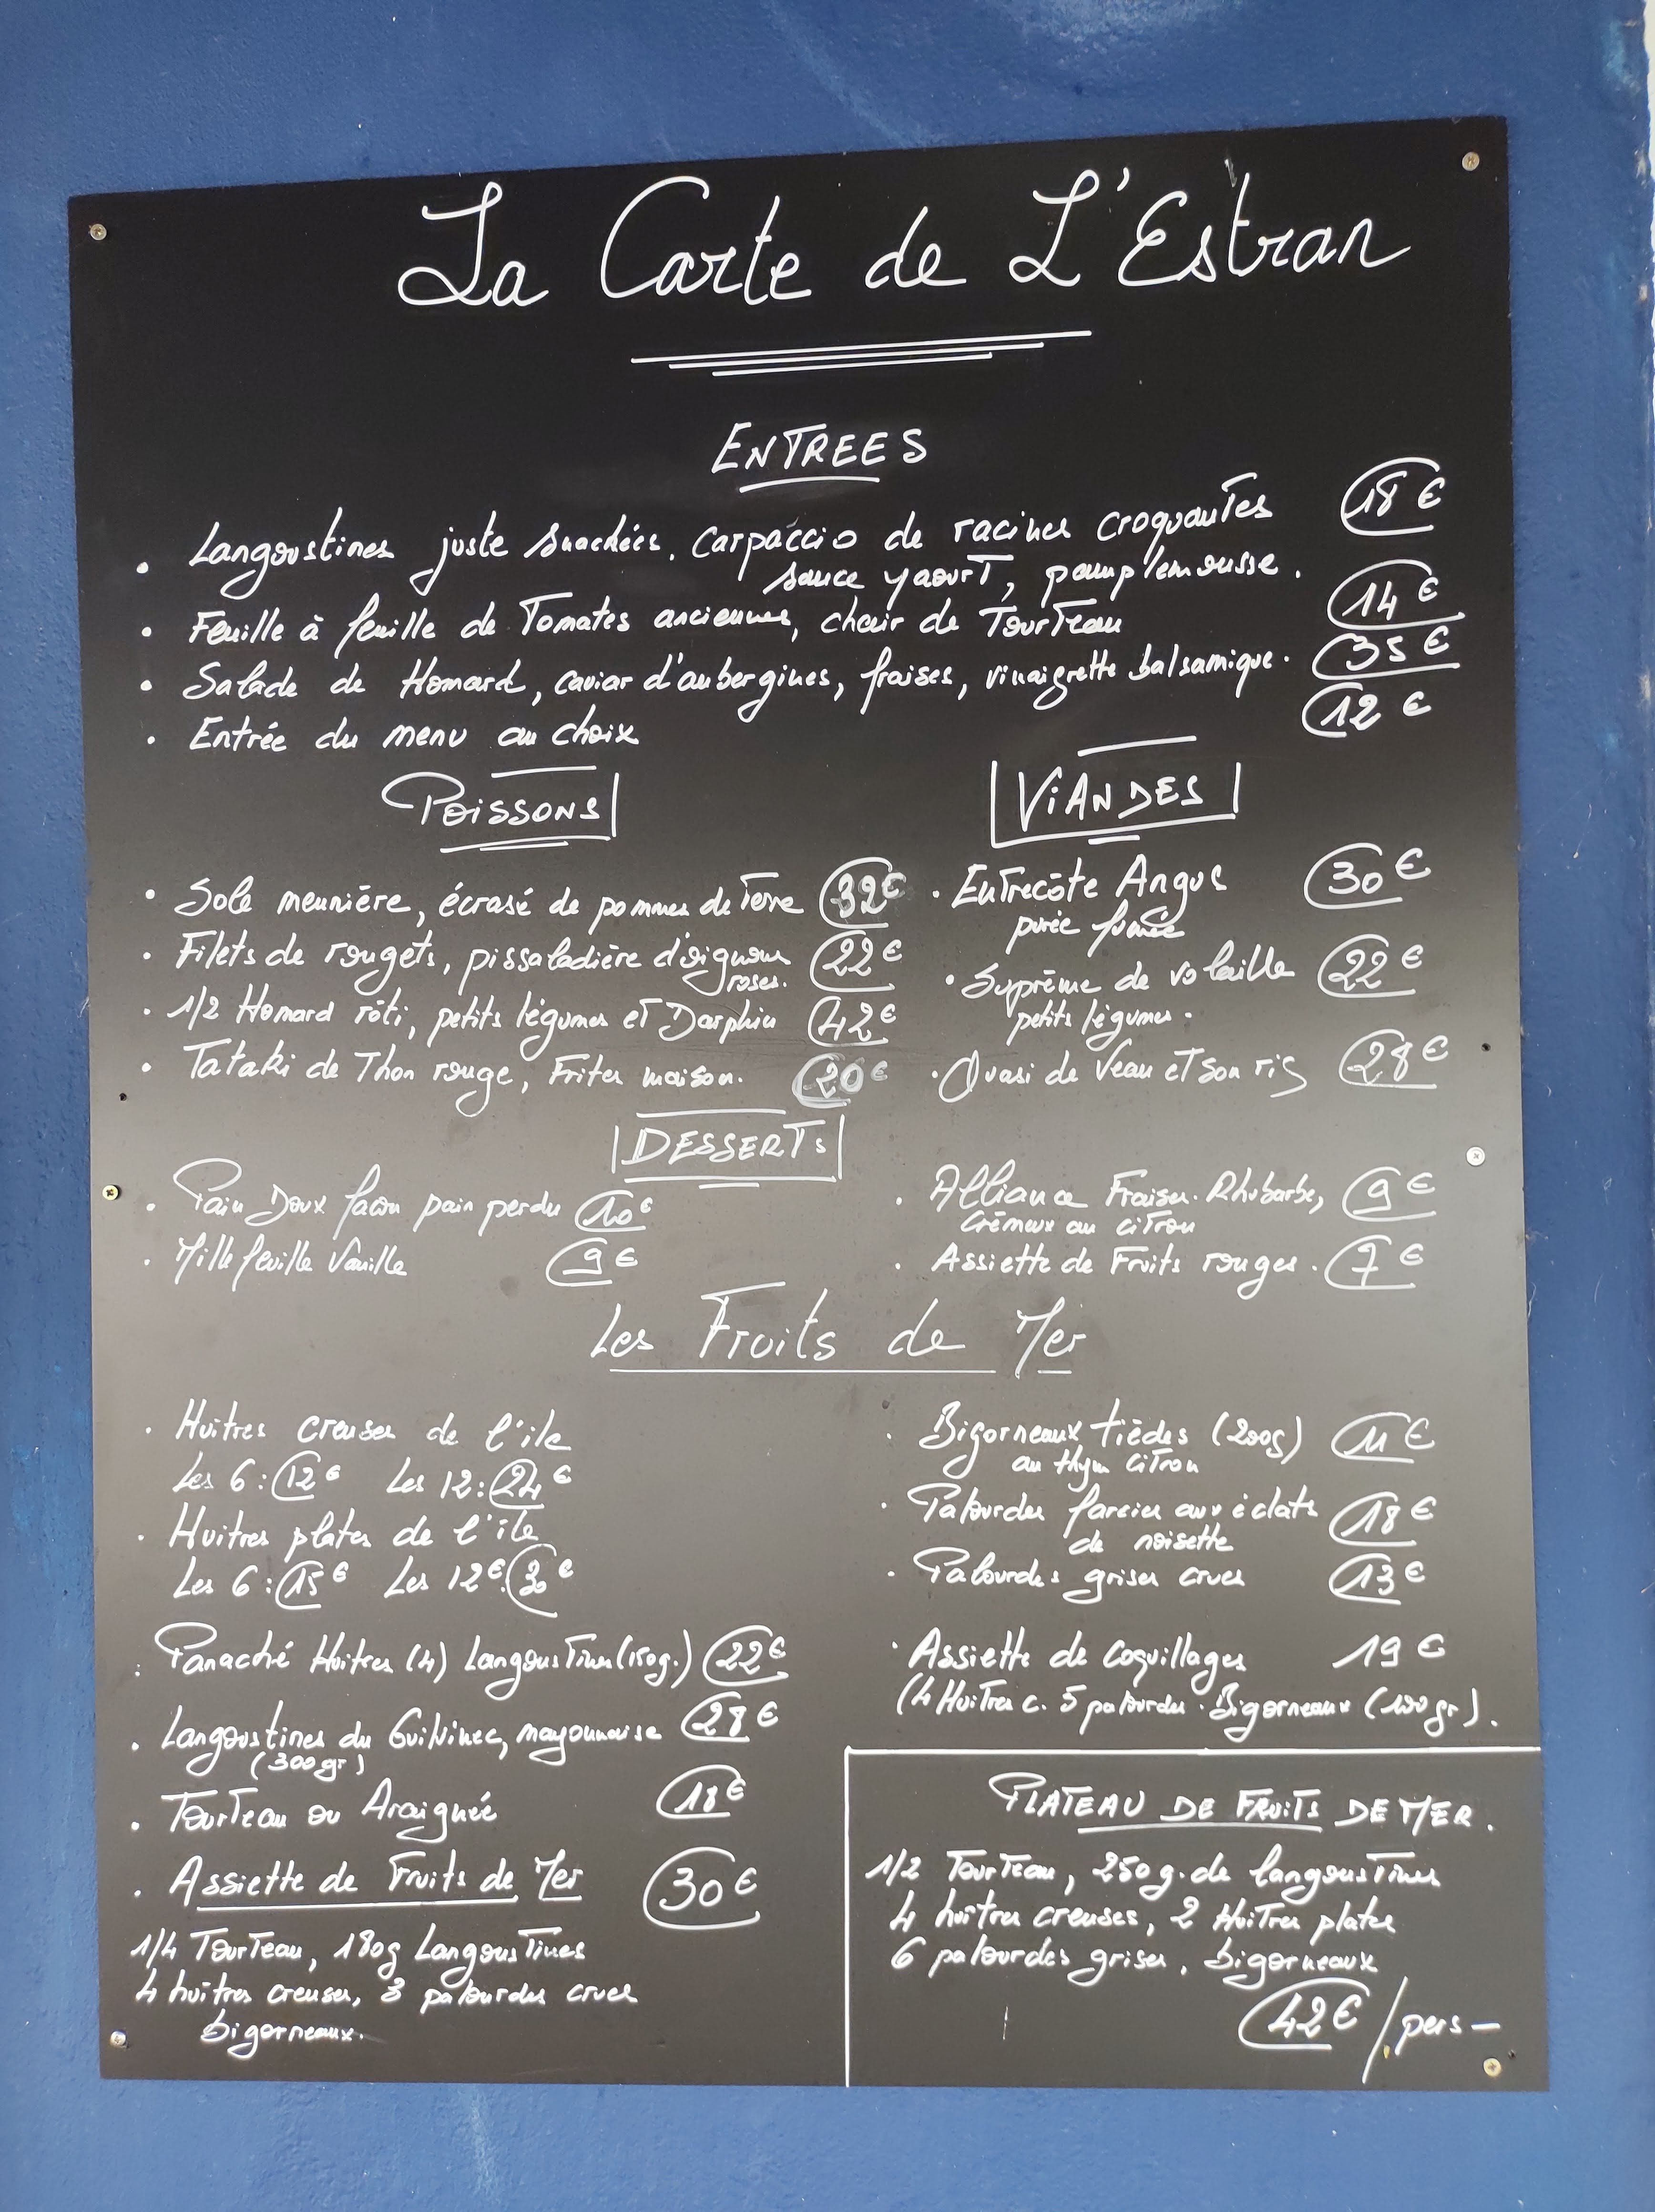 La Carte de L'Estran
ENTREES
. Langoustines juste snackées. Carpaccio de racines croquantes 18 €
sauce yaourt, pamplemousse.
. Feuille à feuille de Tomates anciennes, chair de Tourteau 14 €
. Salade de Homard, caviar d'aubergines, fraises, vinaigrette balsamique. 35 €
. Entrée du menu au choix 12 €
POISSONS
. Sole meunière, écrasé de pommes de Terre 32€
. Filets de rougets, pissaladière d'oignons 22€
roses.
. 1/2 Homard rôti, petits légumes et Darphin 42€
. Tataki de Thon rouge, Frites maison. 20€
VIANDES
. Entrecôte Angus 30€
purée fumée
. Suprême de volaille 22€
petits légumes.
. Quasi de Veau et son ris 28€
DESSERTS
. Pain Doux façon pain perdu 10€
. Mille feuille Vanille 9€
. Alliance Fraises. Rhubarbe, 9€
Crémeux au citron
. Assiette de Fruits rouges. 7€
Les Fruits de Mer
. Huîtres creuses de l'île
Les 6 : 12€ Les 12 : 24€
. Huitres plates de l'île
Les 6 : 15€ Les 12€: 30€
: Panaché Huitres (4) Langoustines (150g.) 22€
. Langoustines du Guilvinec, mayonnaise 28€
(300gr)
. Tourteau ou Araignée 18€
. Assiette de Fruits de Mer 30€
1/4 Tourteau, 180g Langoustines
4 huîtres creuses, 3 palourdes crues
bigorneaux.
. Bigorneaux tièdes (200g) 11€
au thym citron
. Palourdes farcies aux éclats 18€
de noisette
. Palourdes grises crues 13€
. Assiette de coquillages 19€
(4 Huitres c. 5 palourdes. Bigorneaux (100gr).
PLATEAU DE FRUITS DE MER.
1/2 Tourteau, 250g. de langoustines
4 huîtres creuses, 2 Huitres plates
6 palourdes grises, bigorneaux
42€ /pers-